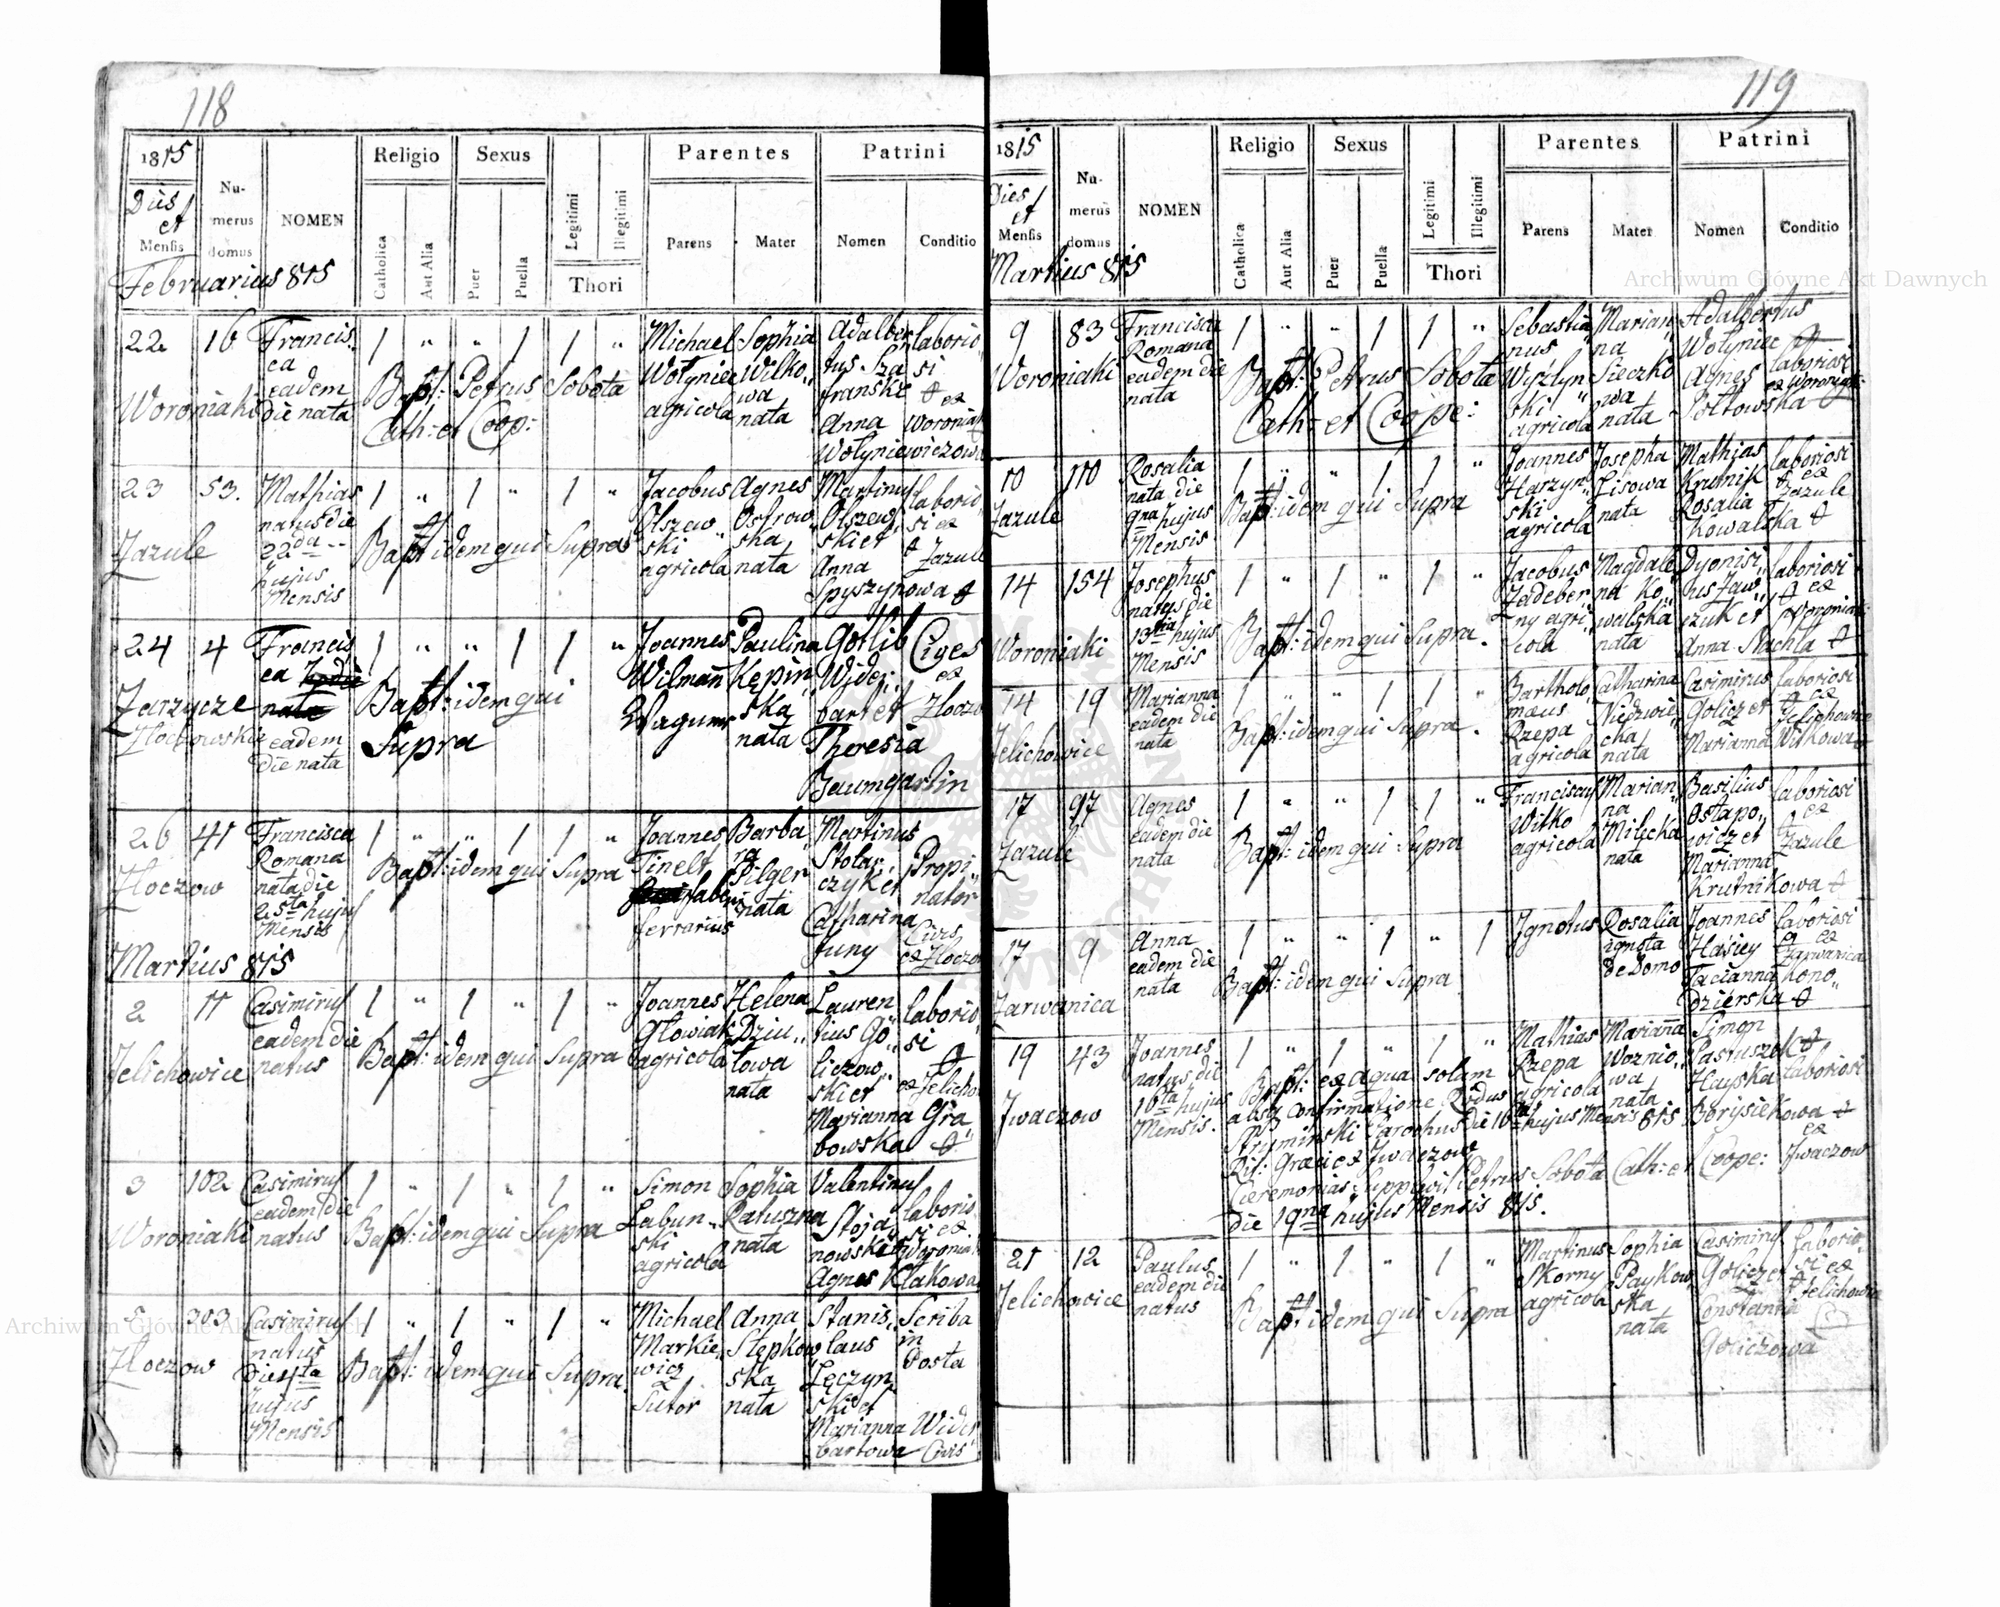 118
1815
Dies et
Mensis
Numerus domus
NOMEN
Religio
Catholica
Aut Alia
Sexus
Puer
Puella
Legitimi
Illegitimi
Thori
Parentes
Parens
Mater
Patrini
Nomen
Conditio
Februarius 815
22
16
Woroniaki
Francis
ca
eadem
die nata
1 " " 1 1 "
Bapt: Petrus Sobota
Cath: et Coop:
Michael
Wołyniec
agricola
Sophia
Wilko„
wa
nata
Adalber
tus Sza
franski
Anna
Wołyniewiczowa
laborio„
si
et ex
Woroniak
23
53.
Zazule
Mathias
natus die
22da
hujus
Mensis
1 " 1 " 1 "
Bapt: idem qui Supra
Jacobus
Olszew„
ski
agricola
Agnes
Ostrow„
ska
nata
Martinus
Olszew„
ski et
Anna
Spyszynowa
laborio„
si ex
Zazule
24
4
Zarzycze
Złoczowskie
Francis
ca
eadem
die nata
1 " " 1 1 "
Bapt: idem qui
Supra
Joannes
Wilmann
Wagumr
Paulina
Kępin„
ska
nata
Gotlib
Wider„
bart et
Theresia
Baumgartin
Cives
ex
Złoczo
26
41
Złoczow
Francisca
Romana
nata die
25ta hujus
Mensis
1 " " 1 1 "
Bapt: idem qui Supra
Joannes
Tinelt
faber
ferrarius
Barba„
ra
Pilger
nata
Martinus
Stolar„
czyk et
Catharina
Juny
Propi„
nator
Civis
ex Złoczo
Martius 815
2
11
Jelichowice
Casimirus
eadem die
natus
1 " 1 " 1 "
Bapt: idem qui Supra
Joannes
Głowiak
agricola
Helena
Dziu„
towa
nata
Lauren
tius Go„
liczow„
ski et
Marianna Gra
bowska
laborio„
si
ex Jelicho
3
102
Woroniaki
Casimirus
eadem die
natus
1 " 1 " 1 "
Bapt: idem qui Supra
Simon
Labun„
ski
agricola
Sophia
Ratuszna
nata
Valentinus
Stoja„
nowski
Agnes Kłakowa
laborio„
si ex
Woroniak
5
303
Złoczow
Casimirus
natus
hujus
Mensis
1 " 1 " 1 "
Bapt: idem qui Supra
Michael
Markie„
wicz
Sutor
Anna
Stępkow
ska
nata
Stanis„
laus
Łęczyn„
ski et
Marianna Wider
bartowa Civis
Scriba
in
Posta
119
1815
Dies et
Mensis
Numerus domus
NOMEN
Religio
Catholica
Aut Alia
Sexus
Puer
Puella
Legitimi
Illegitimi
Thori
Parentes
Parens
Mater
Patrini
Nomen
Conditio
Martius 815
9
83
Woroniaki
Francisca
Romana
eadem die
nata
1 " " 1 1 "
Bapt: Petrus Sobota
Cath: et Coope:
Sebastia
nus
Wyzlyn„
ski
agricola
Marian„
na
Sieczko
wa
nata
Adalbertus
Wołyniec et
Agnes
Połtowska
laboriosi
ex Woroniak:
10
110
Zazule
Rosalia
nata die
9na hujus
Mensis
1 " " 1 1 "
Bapt: idem qui Supra
Joannes
Harzyn„
ski
agricola
Josepha
Lisowa
nata
Mathias
Krutnik
Rosalia
Kowalska
laboriosi
et ex
Zazule
14
154
Woroniaki
Josephus
natus die
13tia hujus
Mensis
1 " 1 " 1 "
Bapt: idem qui Supra.
Jacobus
Zadeber
ny agri„
cola
Magdale
na Ko„
walska
nata
Dyonisi„
us Zaw„
czuk et
Anna Stachla
laboriosi
et ex
Woroniak:
14
19
Jelichowice
Marianna
eadem die
nata
1 " " 1 1 "
Bapt: idem qui Supra.
Bartholo„
maeus
Rzepa
agricola
Catharina
Niedzwie„
cka
nata
Casimirus
Golicz et
Marianna Witkowa
laboriosi
et ex
Jelichowice
17
97
Zazule
Agnes
eadem die
nata
1 " " 1 1 "
Bapt: idem qui Supra
Franciscus
Witko
agricola
Marian„
na
Milęcka
nata
Basilius
Ostapo„
wicz et
Marianna
Krutnikowa
laboriosi
et ex
Zazule
17
9
Zarwanica
Anna
eadem die
nata
1 " " 1 " 1
Bapt: idem qui Supra
Ignotus
Rosalia
ignota
de Domo
Joannes
Hasiey
Tacianna Kono„
dzierska
laboriosi
et ex
Zarwanica
19
43
Jwaczow
Joannes
natus die
16ta hujus
Mensis.
1 " 1 " 1 "
Bapt: ex Aqua solam
absq Confirmatione
Parochus die 16ta hujus Mensis 815
Rit: Graeci ex Jwaczow
Cieremonias Supplevit Petrus Sobota Cath: et Coope:
die 19na hujus Mensis 815.
Mathias
Rzepa
agricola
Marianna
Woznio„
wa
nata
Simon
Pastuszok et
Hayska
Borysiekowa
laboriosi
ex
Jwaczow
21
12
Jelichowice
Paulus
eadem die
natus
1 " 1 " 1 "
Bapt: idem qui Supra
Martinus
Skorny
agricola
Sophia
Paykow
ska
nata
Casimirus
Golicz et
Constantia
Goliczowa
laborio„
si ex
et Jelichowice
Archiwum Główne Akt Dawnych
Archiwum Główne Akt Dawnych